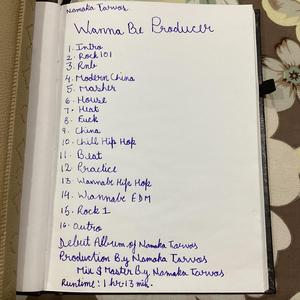 Namaka Tarvos
Wanna Be Producer
1. Intro
2. Rock 101
3. Rnb
4. Modern China
5. Masher
6. House
7. Heat
8. Fuck
9. China
10. Chill Hip Hop
11. Beat
12 Practice
13. Wannabe Hip Hop
14. Wannabe EDM
15. Rock 1
16. Outro
Debut Album of Namaka Tarvos
Production By Namaka Tarvos
Mix & Master By Namaka Tarvos
Runtime: 1 hr. 13 min.